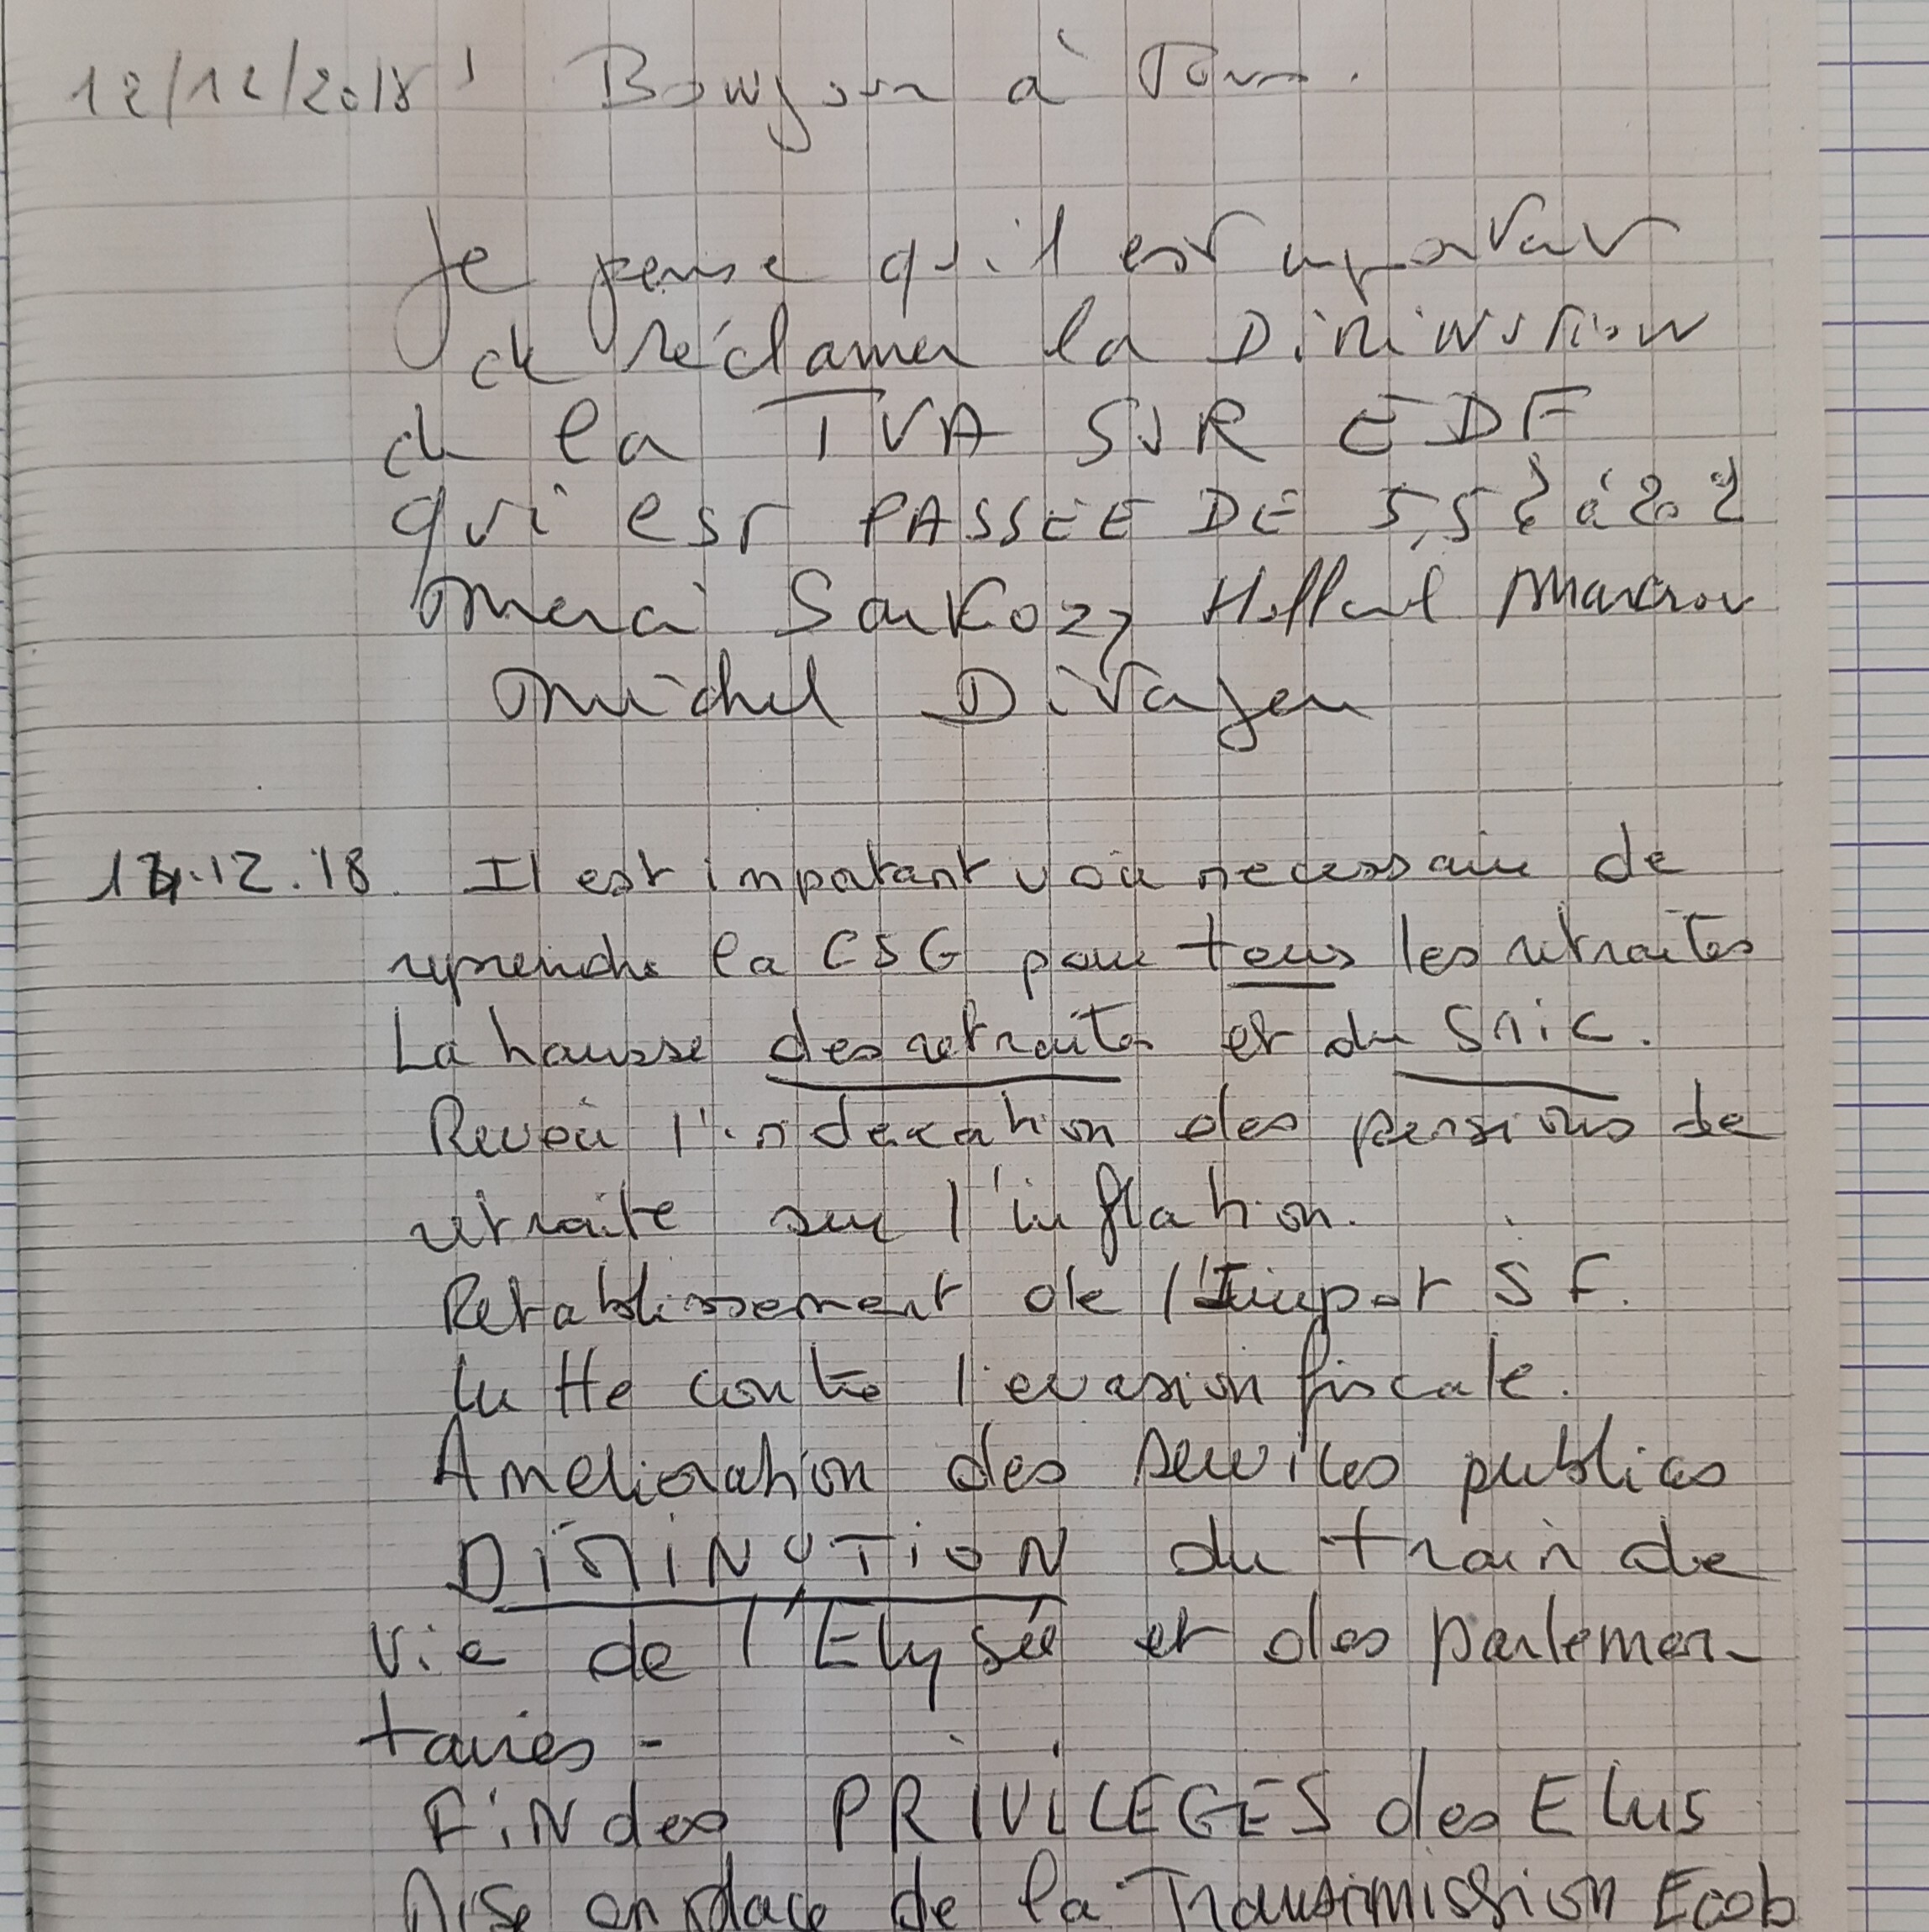 12/12/2018 Bonjour à Tous.
Je pense qu'il est important
de réclamer la DiMiNUTiON
de la TVA SUR EDF
qui est PASSEE DE 5,5 % à 20 %
merci Sarkozy Holland Macron
Michel
14.12.18. Il est important voir necessaire de
reprendre la CSG pour tous les retraites
La hausse des retraites et du SMic.
Revoir l'indexation des pensions de
retraite sur l'inflation.
Retablissement de l'Impot S F.
lutte contre l'evasion fiscale.
Amelioration des services publics
DiMiNUTiON du train de
vie de l'Elysée et des parlemen-
taires -
FiN des PRIVILEGES des Elus
Mise en place de la Transimission Ecob